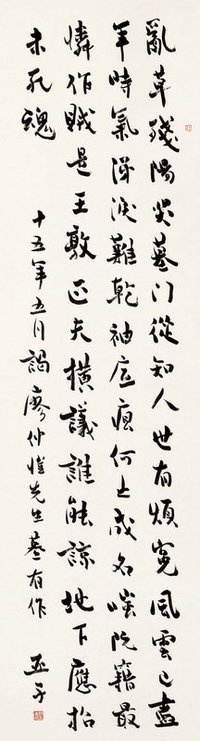 亂草殘陽哭墓门從知人世有煩寃風雲已盡
年時氣涕淚難乾袖底痕何止成名嗤阮籍最
憐作賊是王敦匹夫橫議誰能諒地下應招
未死魂 十五年五月謁廖仲愷先生墓有作 亞子